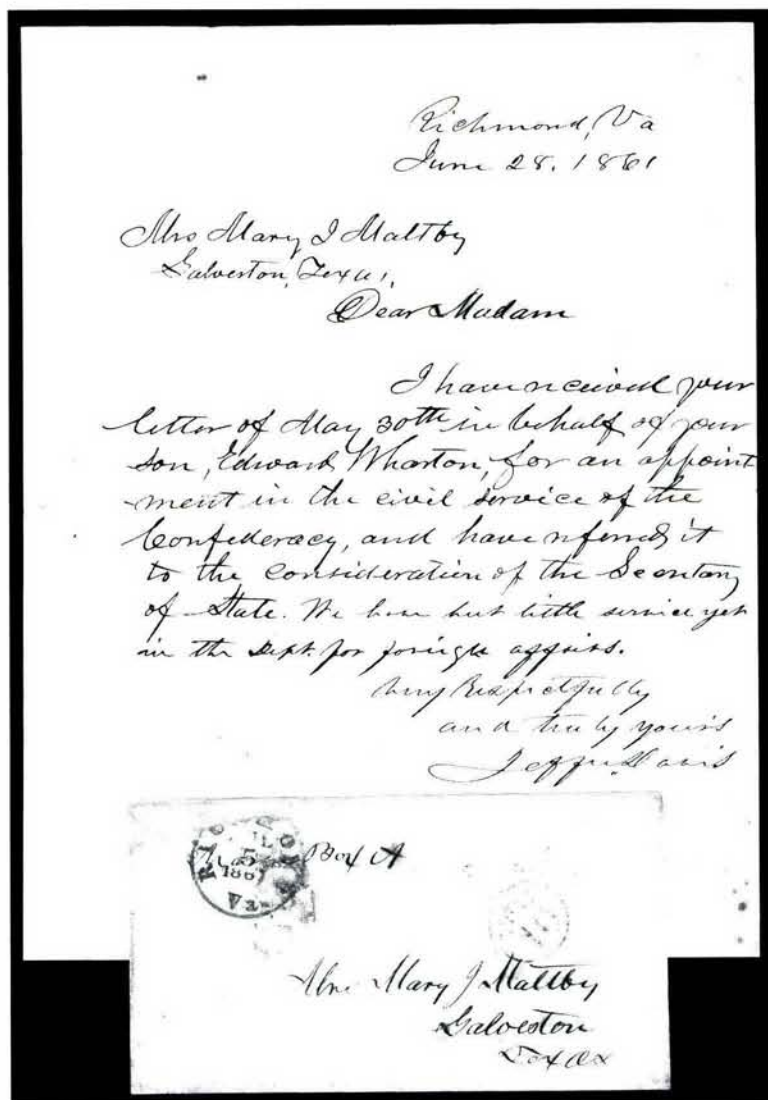 Richmond, Va
June 28. 1861
Mrs Mary J Maltby
Galveston, Texas,
Dear Madam
I have received your
letter of May 30th in behalf of your
son, Edward Wharton, for an appoint
-ment in the civil service of the
Confederacy, and have referred it
to the consideration of the Secretary
of State. We have but little service yet
in the Dept. for foreign affairs.
Very Respectfully
and truly yours
Jeffn. Davis
Box A
RICHMOND
JUL
5
1861
Va.
Mrs. Mary J Maltby
Galveston
Texas